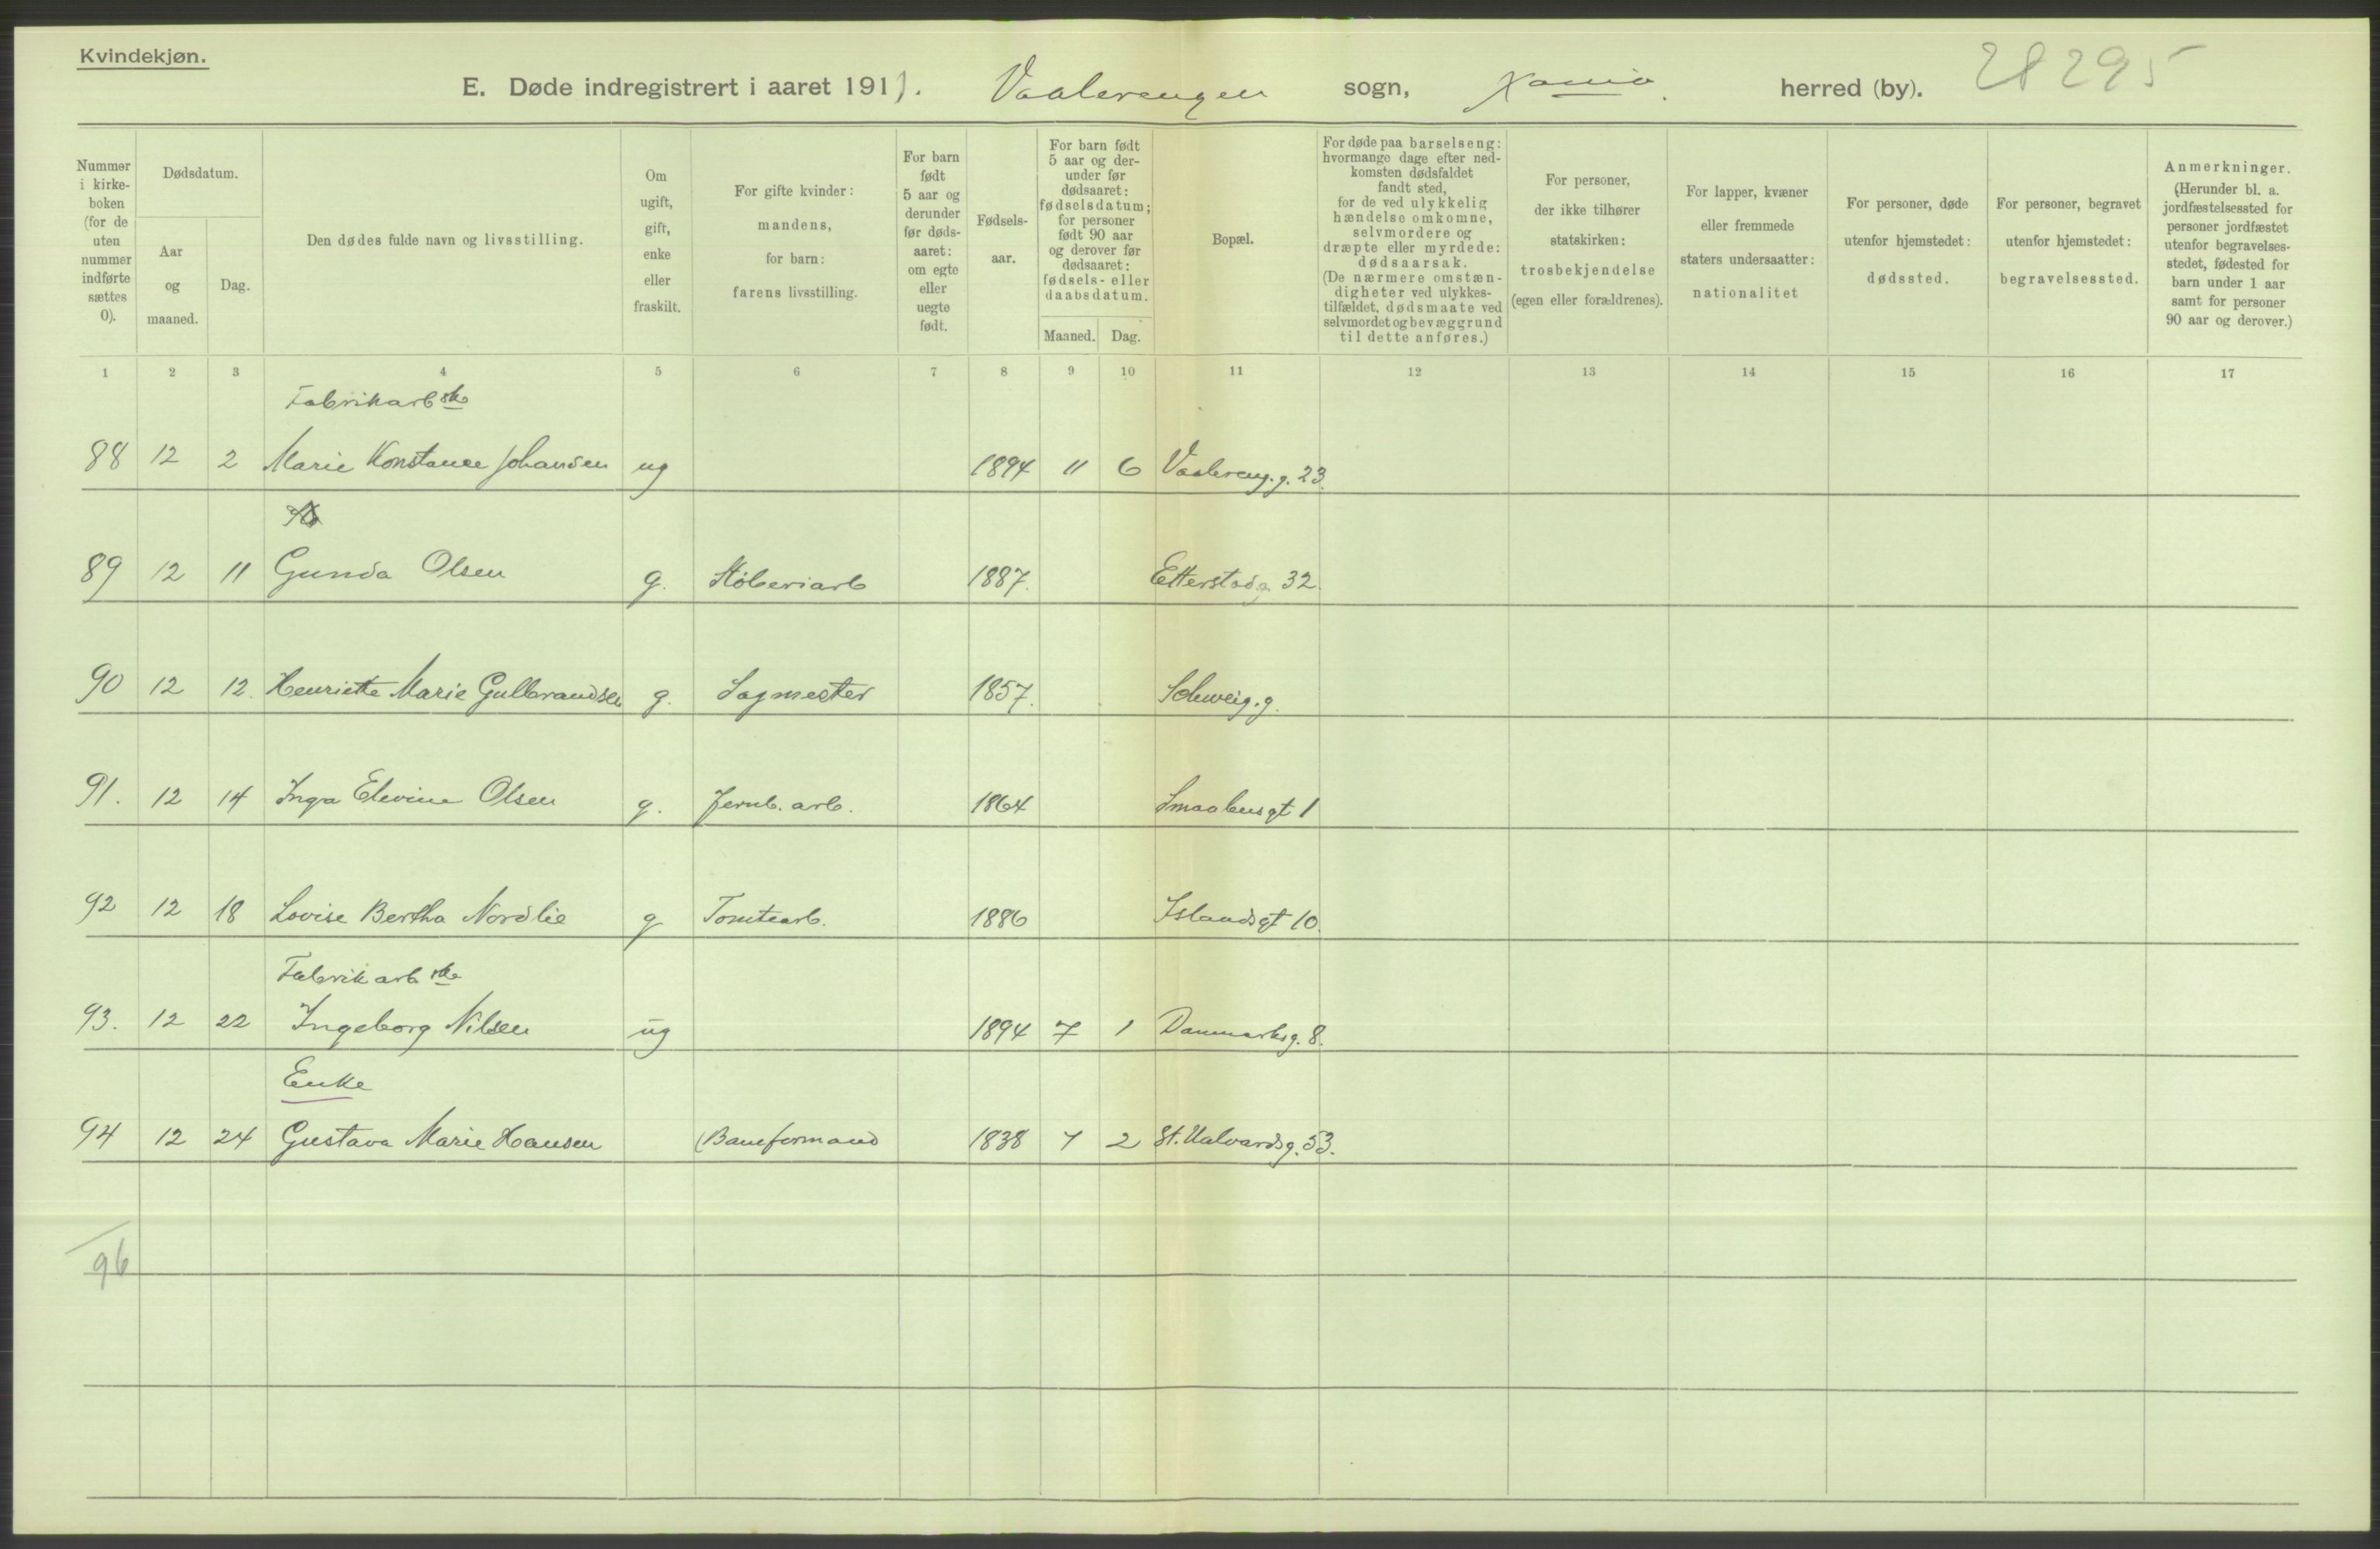 Kvindekjøn.
E. Døde indregistrert i aaret 1911. Vaalerengen sogn, Xania herred (by). 28295
Nummer i kirke-boken (for de uten nummer indførte sættes 0).
Dødsdatum.
Aar og maaned.
Dag.
Den dødes fulde navn og livsstilling.
Om ugift, gift, enke eller fraskilt.
For gifte kvinder: mandens, for barn: farens livsstilling.
For barn født 5 aar og derunder før døds-aaret: om egte eller uegte født.
Fødsels-aar.
For barn født 5 aar og der-under før dødsaaret: fødselsdatum; for personer født 90 aar og derover før dødsaaret: fødsels- eller daabsdatum.
Maaned. Dag.
Bopæl.
For døde paa barselseng: hvormange dage efter ned-komsten dødsfaldet fandt sted, for de ved ulykkelig hændelse omkomne, selvmordere og dræpte eller myrdede: dødsaarsak. (De nærmere omstæn-digheter ved ulykkes-tilfældet, dødsmaate ved selvmordet og bevæggrund til dette anføres.)
For personer, der ikke tilhører statskirken: trosbekjendelse (egen eller forældrenes).
For lapper, kvæner eller fremmede staters undersaatter: nationalitet
For personer, døde utenfor hjemstedet: dødssted.
For personer, begravet utenfor hjemstedet: begravelsessted.
Anmerkninger. (Herunder bl. a. jordfæstelsessted for personer jordfæstet utenfor begravelses-stedet, fødested for barn under 1 aar samt for personer 90 aar og derover.)
1 2 3 4 5 6 7 8 9 10 11 12 13 14 15 16 17
Fabrikarbske
88 12 2 Marie Konstance Johansen ug 1894 11 6 Vaalereng.g. 23.
89 12 11 Gunda Olsen g. Støberiarb 1887. Etterstadg. 32.
90 12 12. Henriette Marie Gulbrandsen g. Sagmester 1857. Solveig.g.
91. 12 14 Inga Elevine Olsen g. Jernb. arb. 1864 Smaalensgt 1
92 12 18 Lovise Bertha Nordlie g Tomtearb. 1886 Islandsgt 10.
Fabrikarbske
93. 12 22 Ingeborg Nilsen ug 1894 7 1 Danmarksg. 8.
Enke
94 12 24 Gustava Marie Hansen (Baneformand 1838 7 2 St. Halvardsg. 53.
96